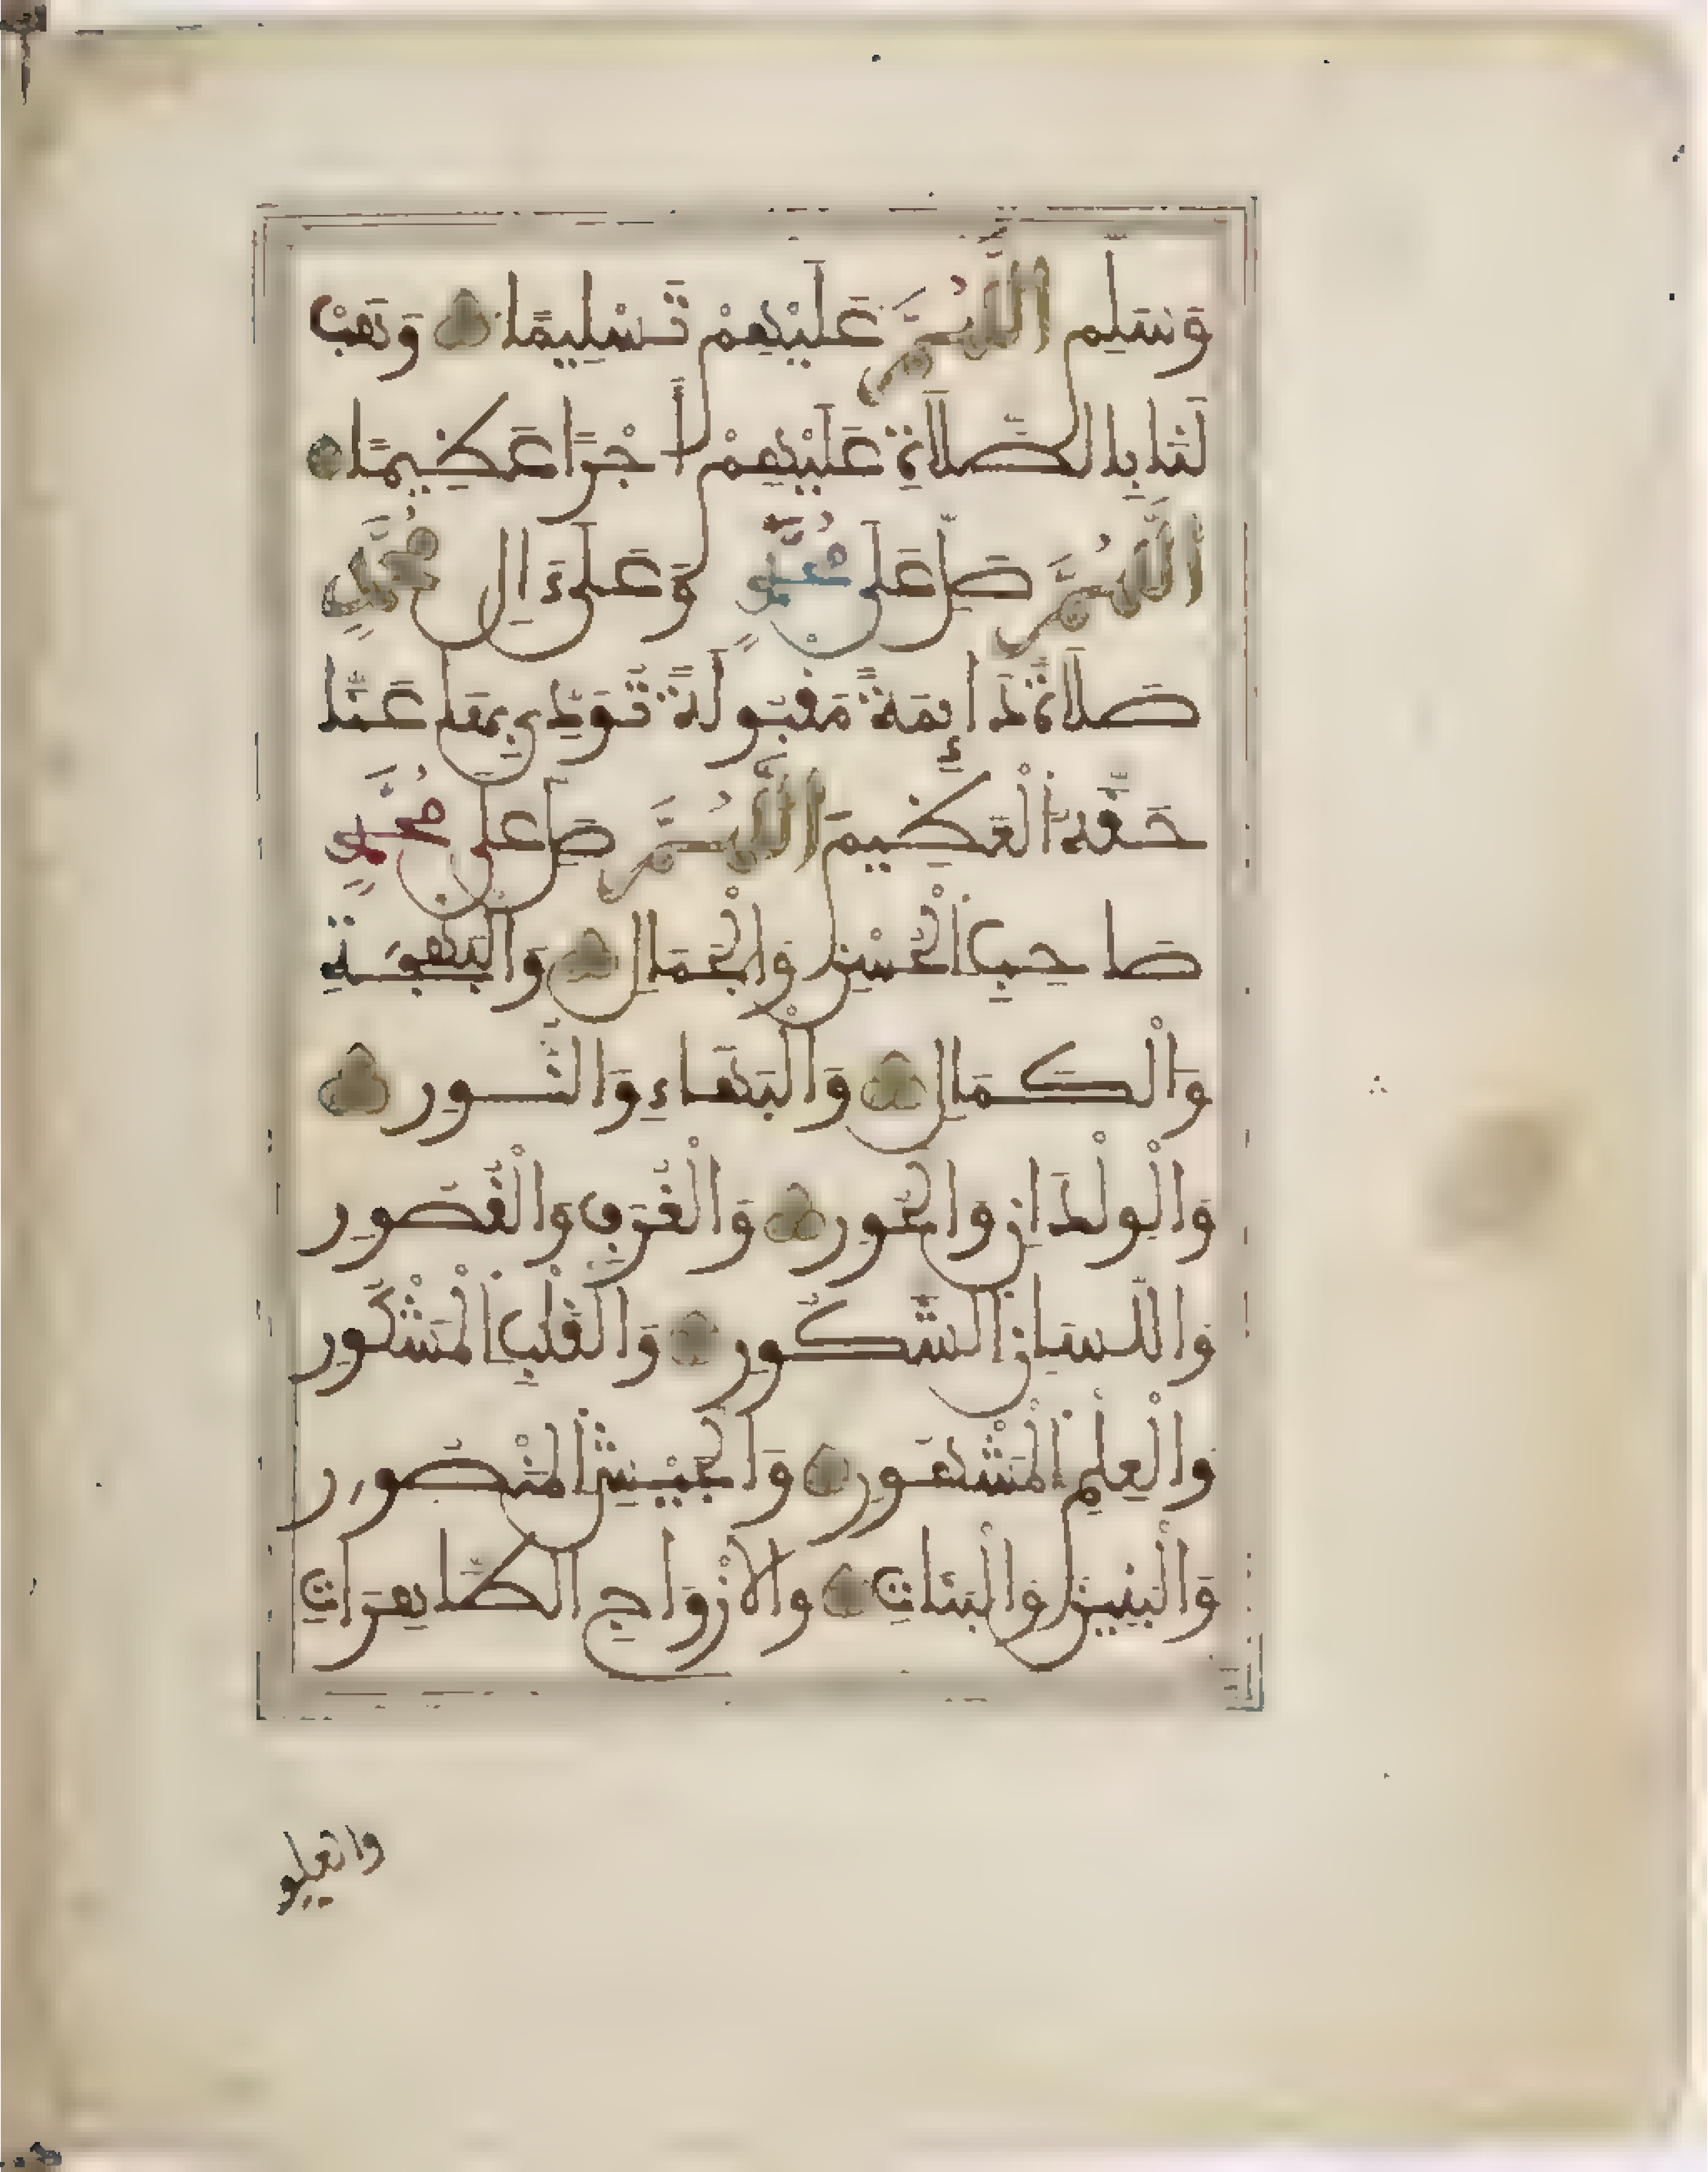 وَسَلِّمِ اللَّهُمَّ عَلَيْهِمْ تَسْلِيمًا وَهَبْ
لَنَا بِالصَّلَاةِ عَلَيْهِمْ أَجْرًا عَظِيمًا
اللَّهُمَّ صَلِّ عَلَى مُحَمَّدٍ وَعَلَى ءَالِ مُحَمَّدٍ
صَلَاةً دَائِمَةً مَقْبُولَةً تُوَدِّي بِهَا عَنَّا
حَقَّهُ الْعَظِيمَ اللَّهُمَّ صَلِّ عَلَى مُحَمَّدٍ
صَاحِبِ الْحُسْنِ وَالْجَمَالِ وَالْبَهْجَةِ
وَالْكَمَالِ وَالْبَهَاءِ وَالنُّورِ
وَالْوِلْدَانِ وَالْحُورِ وَالْغُرَفِ وَالْقُصُورِ
وَاللِّسَانِ الشَّكُورِ وَالْقَلْبِ الْمَشْكُورِ
وَالْعِلْمِ الْمَشْهُورِ وَالْجَيْشِ الْمَنْصُورِ
وَالْبَنِينَ وَالْبَنَاتِ وَالْأَزْوَاجِ الطَّاهِرَاتِ